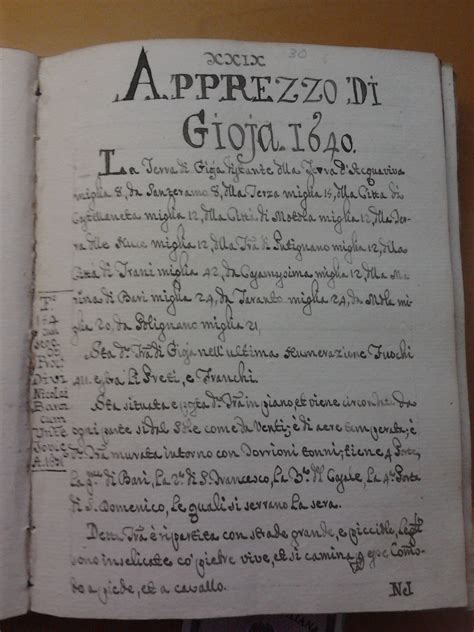 XXIX
30
APPREZZO DI
Gioja. 1640.
La Terra di Gioja distante dlla Terra d'Acquaviva
miglia 8, da Sanzeramo 8, dlla Terza miglia 15, dlla Città di
Castellaneta miglia 12, dlla Città di Motola miglia 12, dlla Ter-
ra dlle Nuce miglia 12, dlla Trã di Putignano miglia 12, dlla
Città di Trani miglia 42, da miglia 12, dlla Ma
rina di Bari miglia 24, da Taranto miglia 24, da Mola mi
glia 20, da Polignano miglia 21,
Sta dã Trã di Gioja nell'ultima Numerazione Fuochi
411. extra li Preti, e Franchi.
Sta situata e posta dã Trã in piano, et viene circondata da
ogni parte sì dal Sole come da Venti; e di aere temperata; è
dã Trã murata intorno con Torrioni tonni; tiene 4 Porte,
La pã di Bari, La 2ã di S. Francesco, La 3ã di Casale, La 4ã Porta
di S. Domenico, Le quali si serrano La sera.
Detta Trã è ripartita con strade grande, e piccole,
sono inselicate cõ pietre vive, et si camina p esse Como-
do a piede, et a cavallo.
Nicolai
Bara
cum